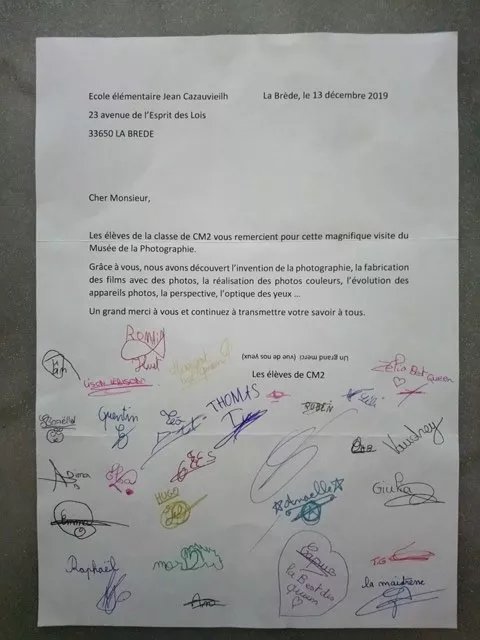 Ecole élémentaire Jean Cazauvieilh La Brède, le 13 décembre 2019
23 avenue de l'Esprit des Lois
33650 LA BREDE
Cher Monsieur,
Les élèves de la classe de CM2 vous remercient pour cette magnifique visite du
Musée de la Photographie.
Grâce à vous, nous avons découvert l'invention de la photographie, la fabrication
des films avec des photos, la réalisation des photos couleurs, l'évolution des
appareils photos, la perspective, l'optique des yeux ...
Un grand merci à vous et continuez à transmettre votre savoir à tous.
Un grand merci (vue de nos yeux)
Les élèves de CM2
Romin
Margot
Célia Best Queen
Quentin
Léo
THOMAS
RUBEN
Vaudrey
HUGO
Anaelle
Giulia
Emma
Raphaël
Capuc
la Best des
Queen
T.G
la maîtresse